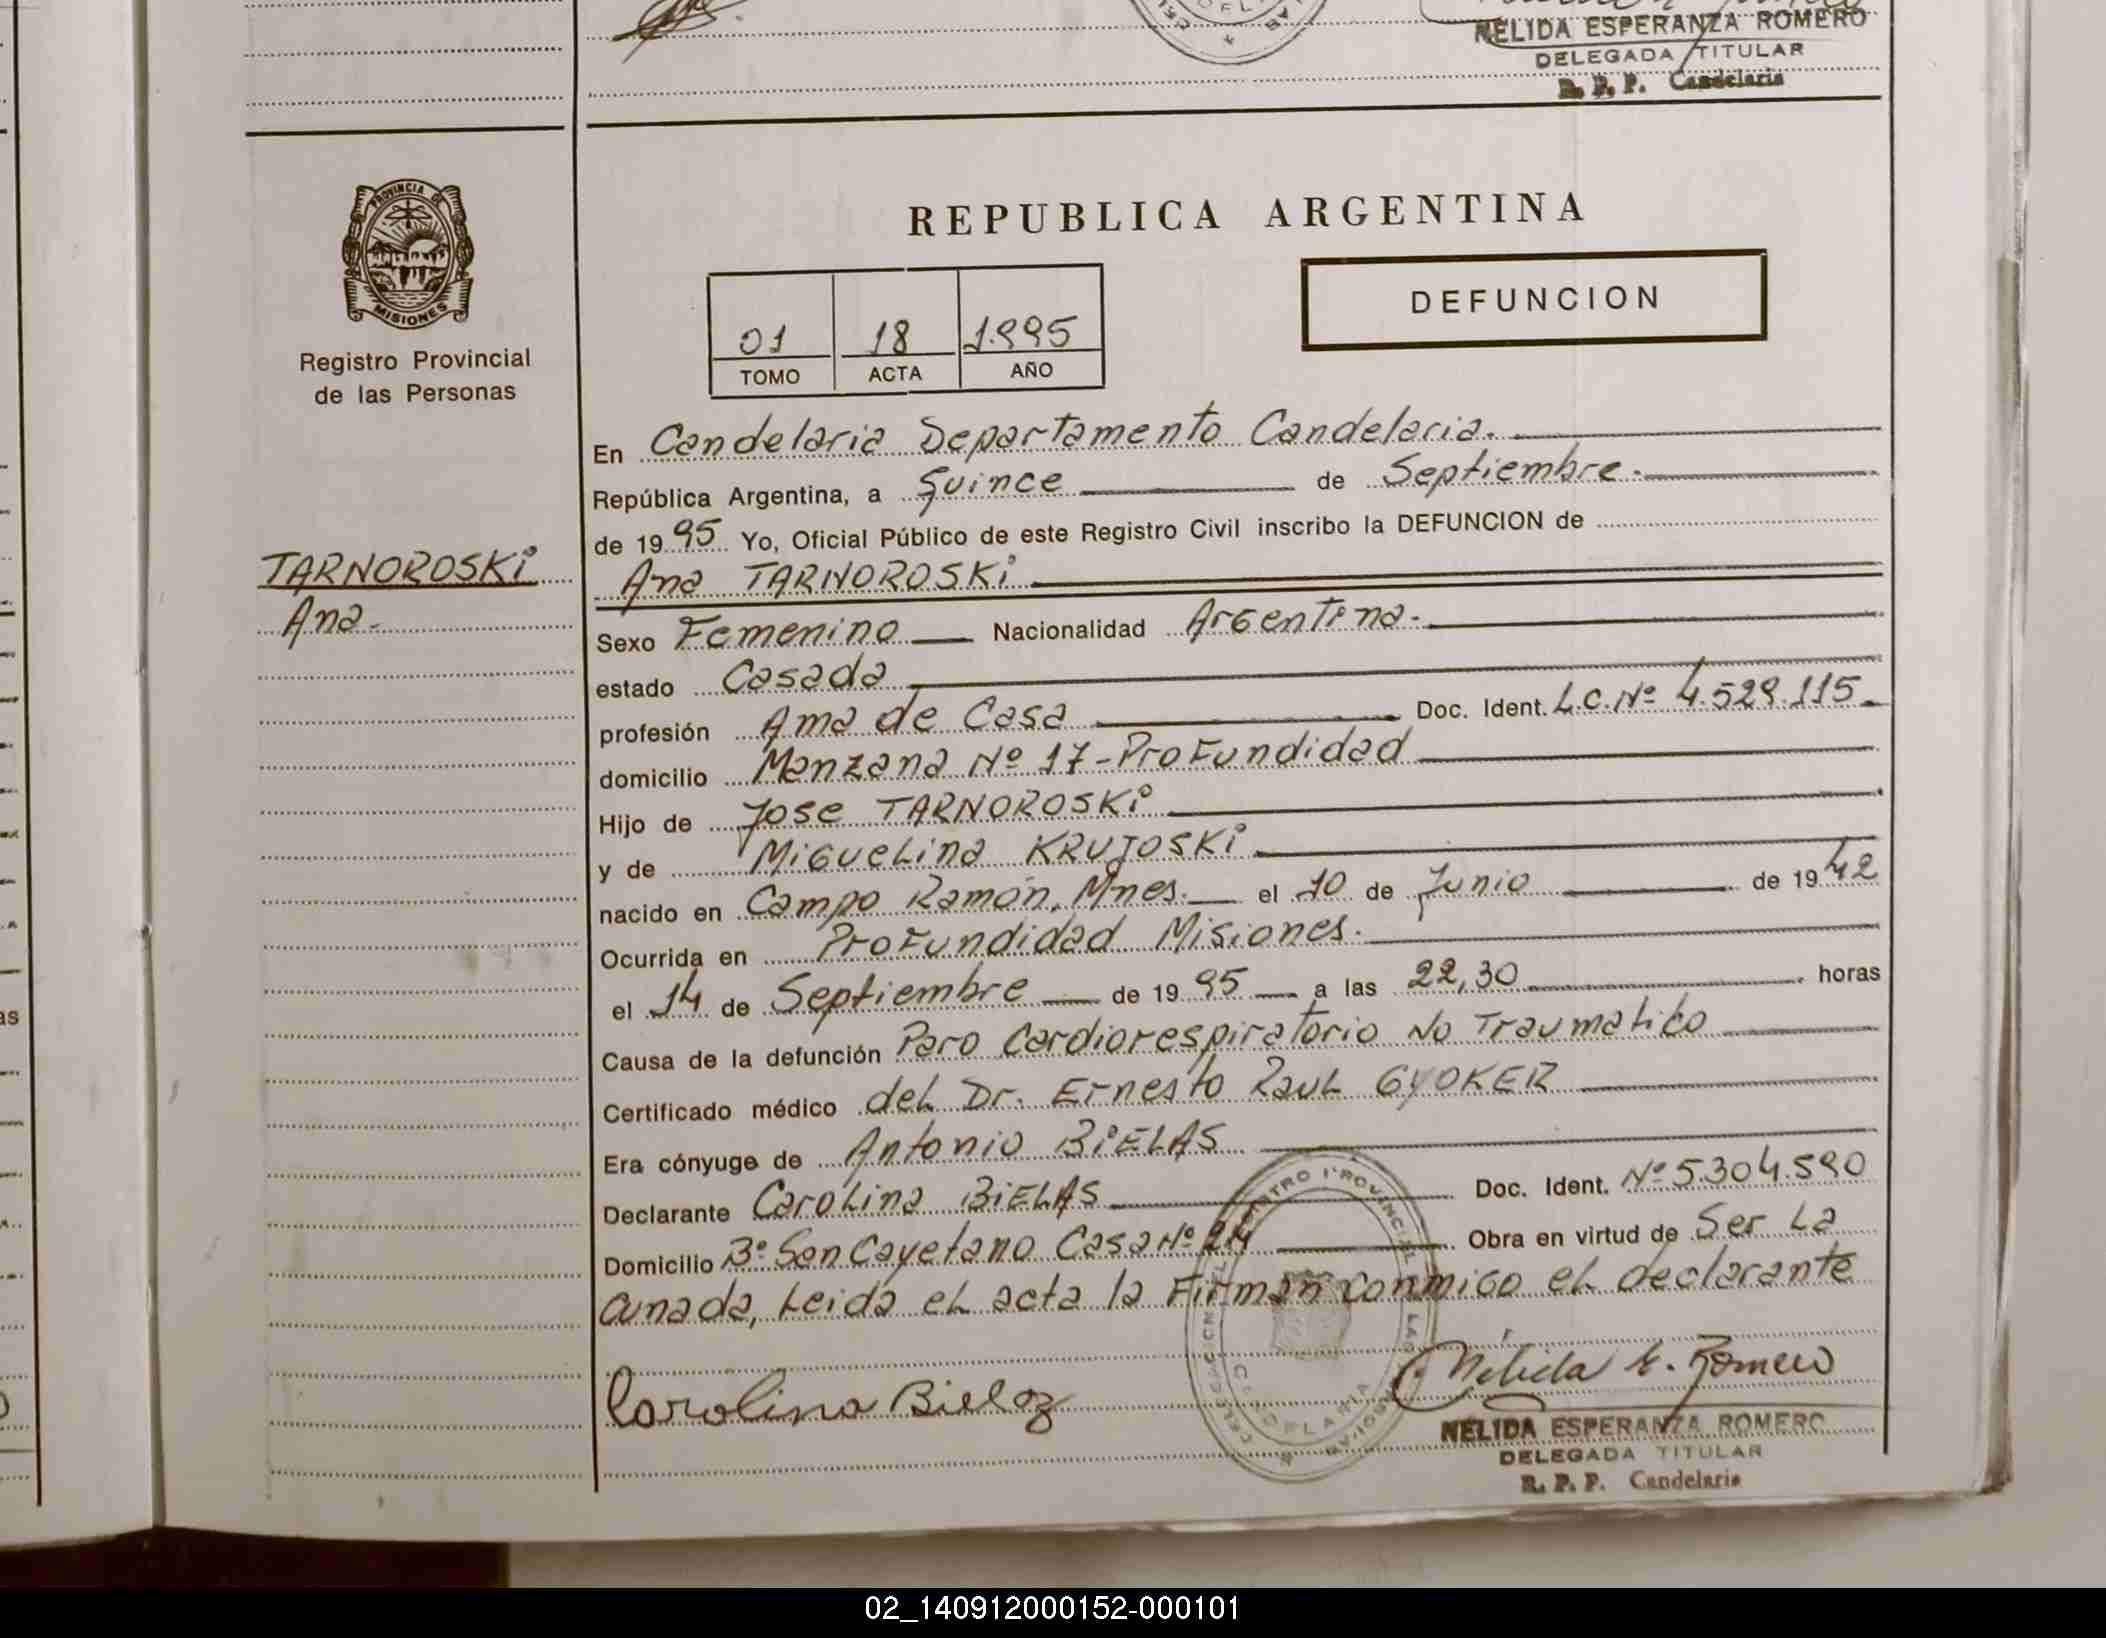 NELIDA ESPERANZA ROMERO
DELEGADA TITULAR
R. P. P. Candelaria
PROVINCIA DE
MISIONES
Registro Provincial
de las Personas
REPUBLICA ARGENTINA
DEFUNCION
01 18 1.995
TOMO ACTA AÑO
En Candelaria Departamento Candelaria.
República Argentina, a Quince de Septiembre.
de 1995 Yo, Oficial Público de este Registro Civil inscribo la DEFUNCION de
TARNOROSKi
Ana.
Ana TARNOROSKi
Sexo Femenino Nacionalidad Argentina.
estado Casada
profesión Ama de Casa Doc. Ident. L.C. Nº 4.529.115
domicilio Manzana Nº 17-Profundidad
Hijo de Jose TARNOROSKi
y de Miguelina KRUJOSKi
nacido en Campo Ramón, Mnes. el 10 de Junio de 1942
Ocurrida en Profundidad Misiones.
el 14 de Septiembre de 1995 a las 22,30 horas
Causa de la defunción Paro Cardiorespiratorio No Traumatico
Certificado médico del Dr. Ernesto Raul GYOKER
Era cónyuge de Antonio BiELAS
Declarante Carolina BiELAS Doc. Ident. Nº 5.304.590
Domicilio Bº San Cayetano Casa Nº 24 Obra en virtud de Ser La
cunada, Leida el acta la Firman conmigo el declarante
Carolina Bielaz
Nélida E. Romero
NELIDA ESPERANZA ROMERO
DELEGADA TITULAR
R. P. P. Candelaria
02_140912000152-000101